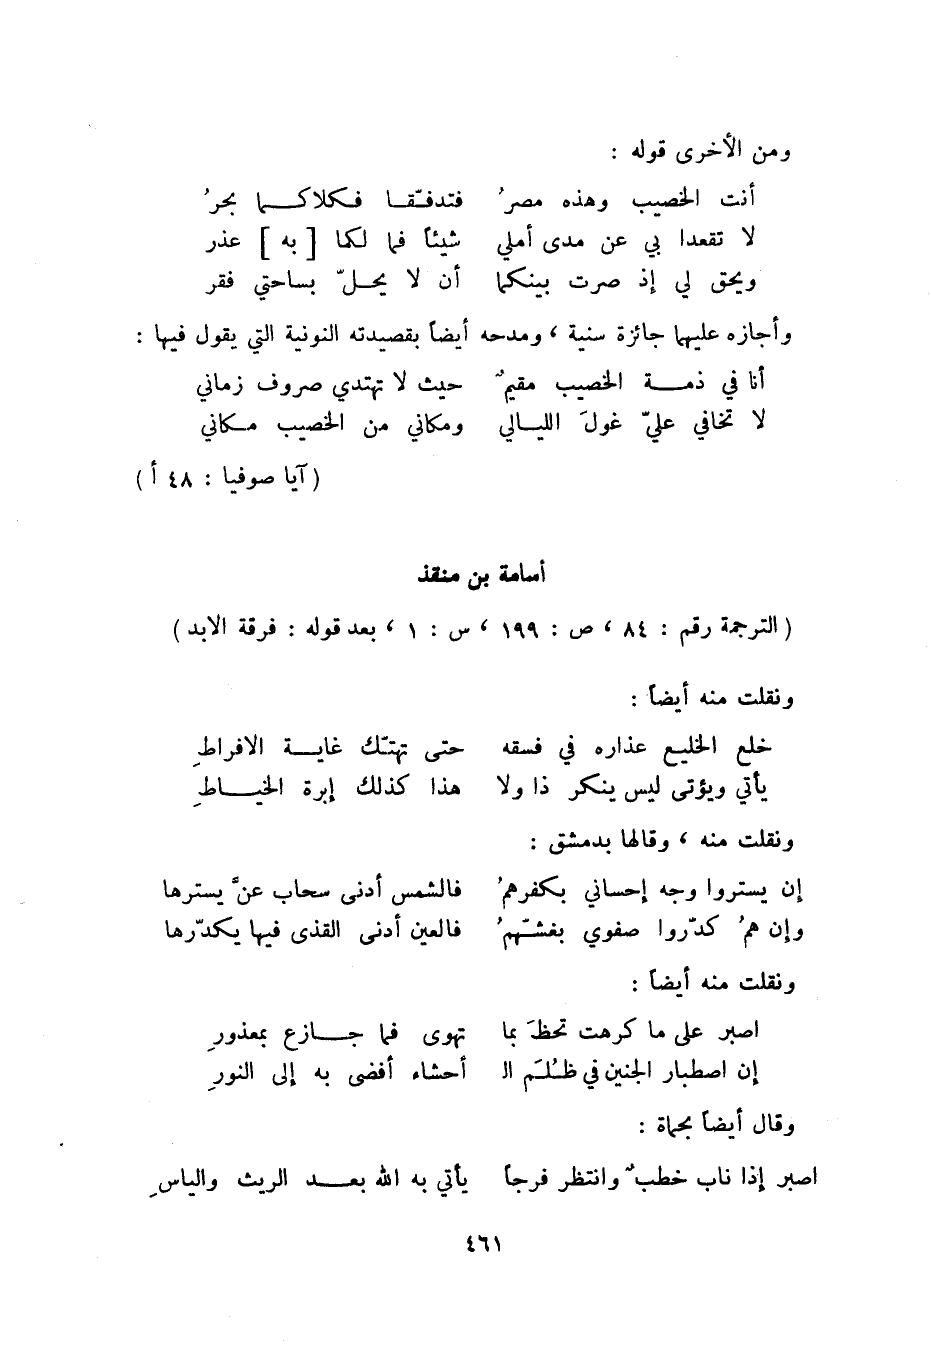 ومن الأخرى قوله :
أنت الخصيب وهذه مصرُ فتدفّقا فكلاكما بحرُ
لا تقعدا بي عن مدى أملي شيئاً فما لكما [ به ] عذر
ويحق لي إذ صرت بينكما أن لا يحلّ بساحتي فقر
وأجازه عليها جائزة سنية ، ومدحه أيضاً بقصيدته النونية التي يقول فيها :
أنا في ذمة الخصيب مقيمٌ حيث لا تهتدي صروف زماني
لا تخافي عليّ غولَ الليالي ومكاني من الخصيب مكاني
( آيا صوفيا : ٤٨ أ )
أسامة بن منقذ
( الترجمة رقم : ٨٤ ، ص : ١٩٩ ، س : ١ ، بعد قوله : فرقة الابد )
ونقلت منه أيضاً :
خلع الخليع عذاره في فسقه حتى تهتّك غاية الافراطِ
يأتي ويؤتى ليس ينكر ذا ولا هذا كذلك إبرة الخياطِ
ونقلت منه ، وقالها بدمشق :
إن يستروا وجه إحساني بكفرهمُ فالشمس أدنى سحاب عنَّ يسترها
وإن همُ كدّروا صفوي بغشّهمُ فالعين أدنى القذى فيها يكدّرها
ونقلت منه أيضاً :
اصبر على ما كرهت تحظَ بما تهوى فما جازع بمعذورِ
إن اصطبار الجنين في ظُلَمِ الـ أحشاء أفضى به إلى النورِ
وقال أيضاً بحماة :
اصبر إذا ناب خطبٌ وانتظر فرجاً يأتي به الله بعد الريث والياسِ
٤٦١